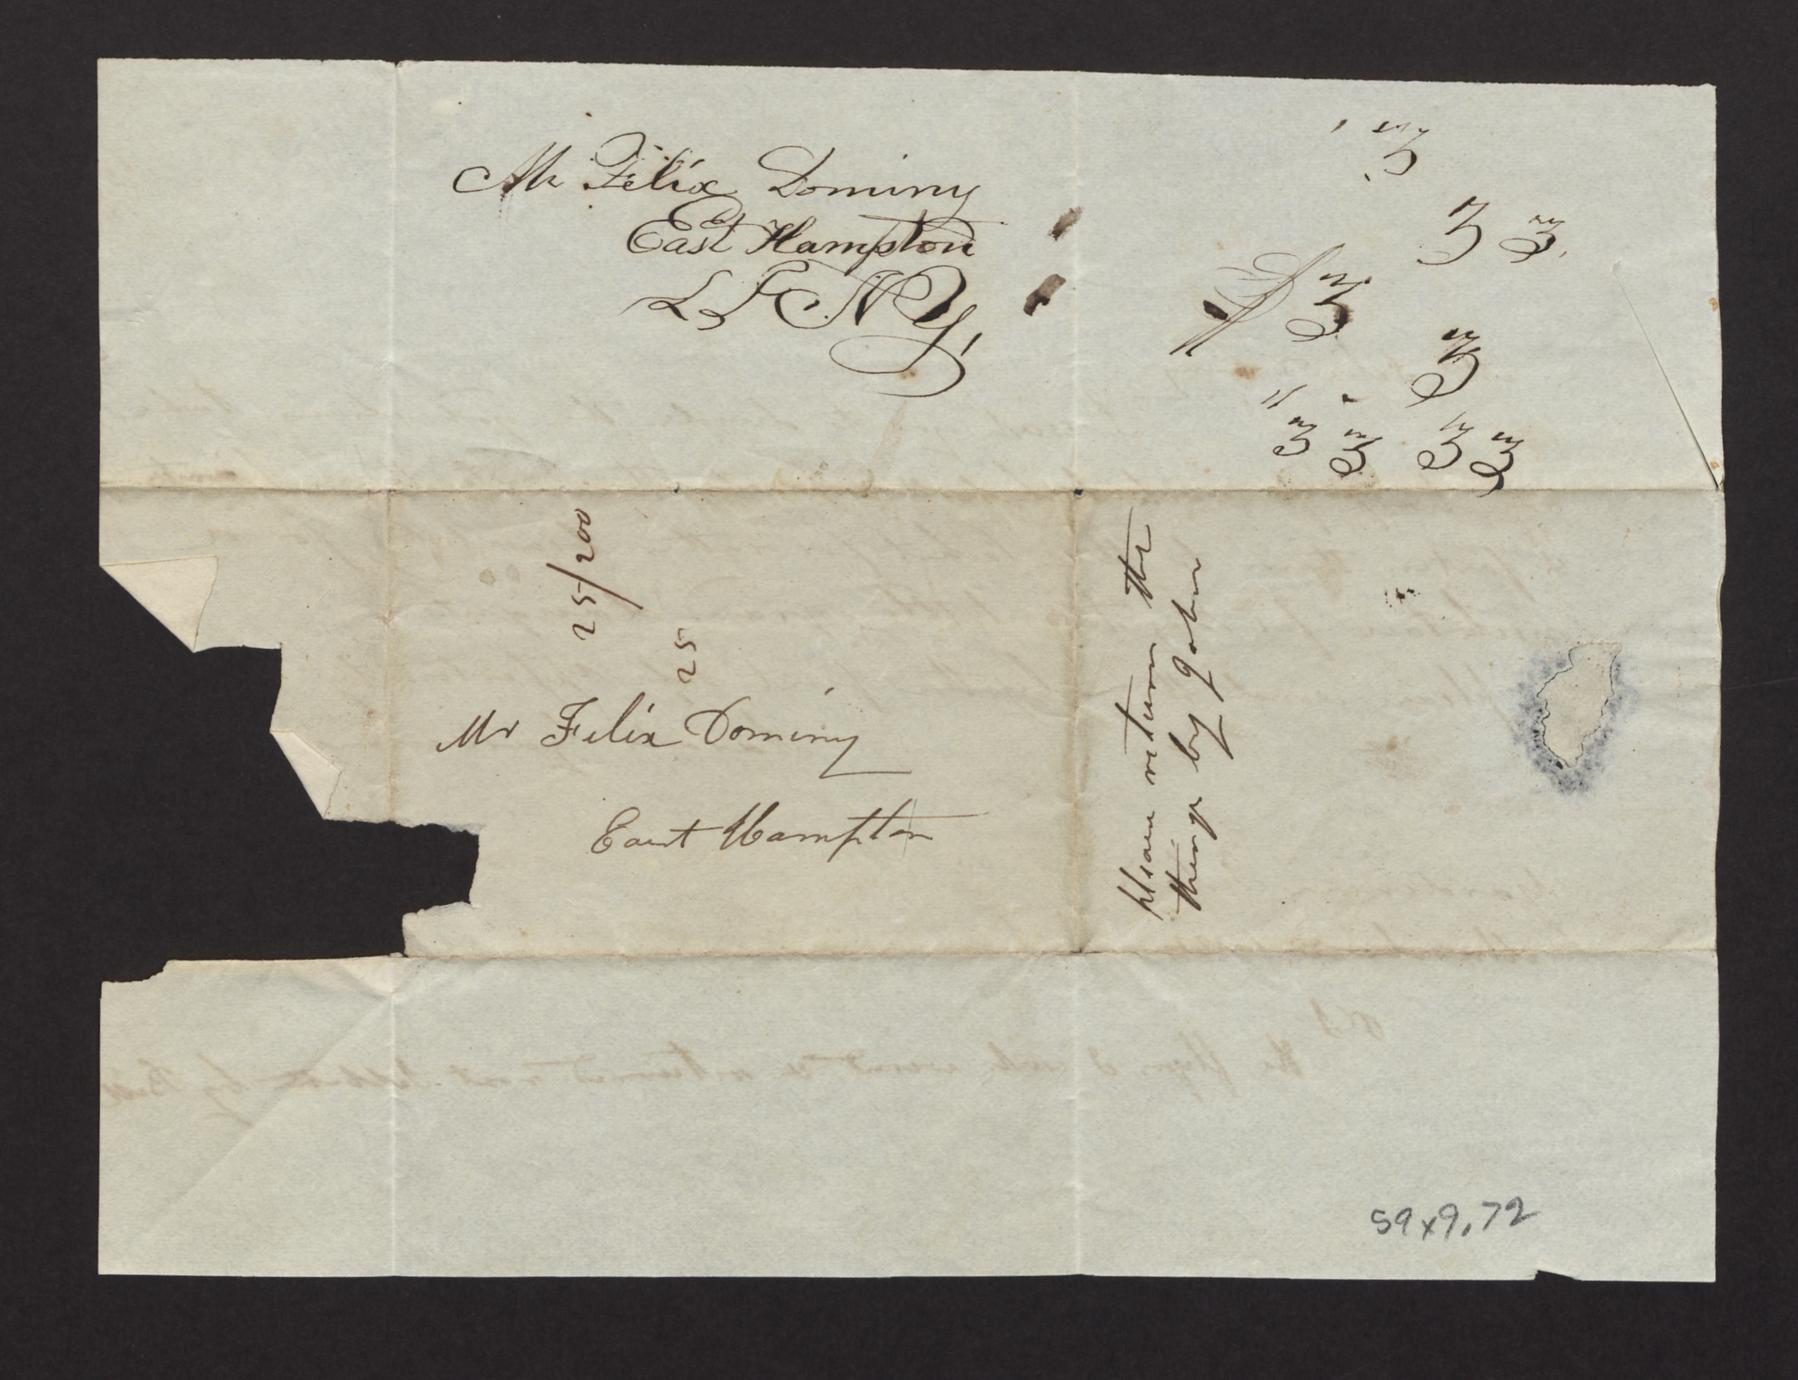 Mr Felix Dominy
East Hampton
L I N Y,
3
3 3
3
3
3 3 3 3
25/200
25
Mr Felix Dominy
East Hampton
please return the
things by
59x9.72